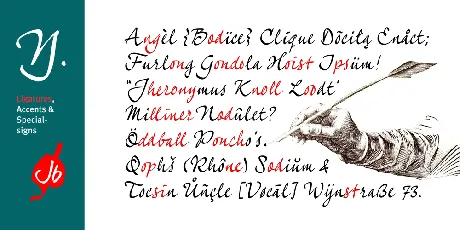 Y.
Ligatures,
Accents &
Special-
signs
Jb
Angèl {Bodïce} Clíque Dõcítą Enåct;
Fŭrlong Gondola Hoist Ipsüm!
"Jheronymus Knoll Loodt'
Millïner Nodûlet?
Öddball Poncho's.
Qophš (Rhône) Sodiŭm &
Tocsin Ůñçle [Vocāl] Wÿnstraße 73.